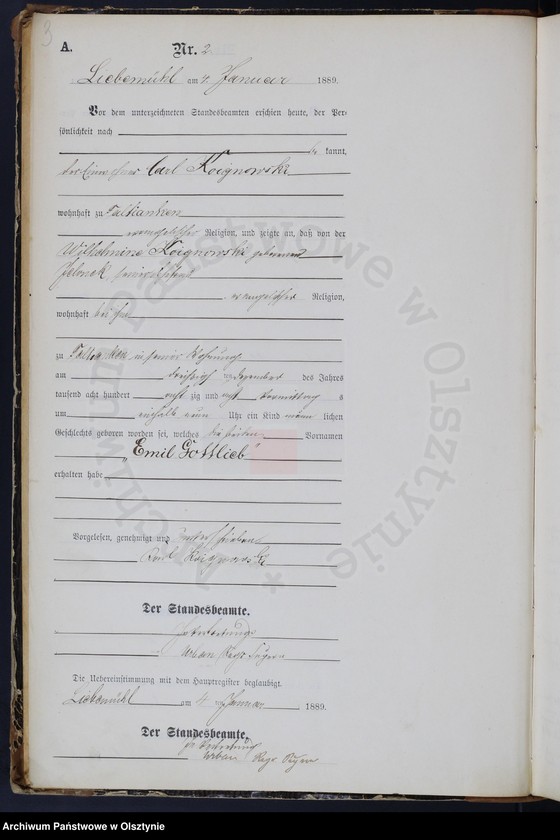 3
A.
Nr. 2
Liebemühl am 4. Januar 1889.
Vor dem unterzeichneten Standesbeamten erschien heute, der Per-
sönlichkeit nach
be kannt,
Carl Koignowski
wohnhaft zu
evangelischer Religion, und zeigte an, daß von der
Wilhelmine Koignowski geborenen
seiner Ehefrau
evangelischer Religion,
wohnhaft bei ihm
zu in seiner Wohnung
am dreißigsten Dezember des Jahres
tausend acht hundert acht zig und acht Vormittags
um einhalb neun Uhr ein Kind männ lichen
Geschlechts geboren worden sei, welches die beiden Vornamen
„Emil Gottlieb"
erhalten habe
Vorgelesen, genehmigt und unterschrieben
Der Standesbeamte.
In Vertretung
Urban
Die Uebereinstimmung mit dem Hauptregister beglaubigt.
Liebemühl am 4 ten Januar 1889.
Der Standesbeamte.
In Vertretung
Urban
Archiwum Państwowe w Olsztynie *
Archiwum Państwowe w Olsztynie